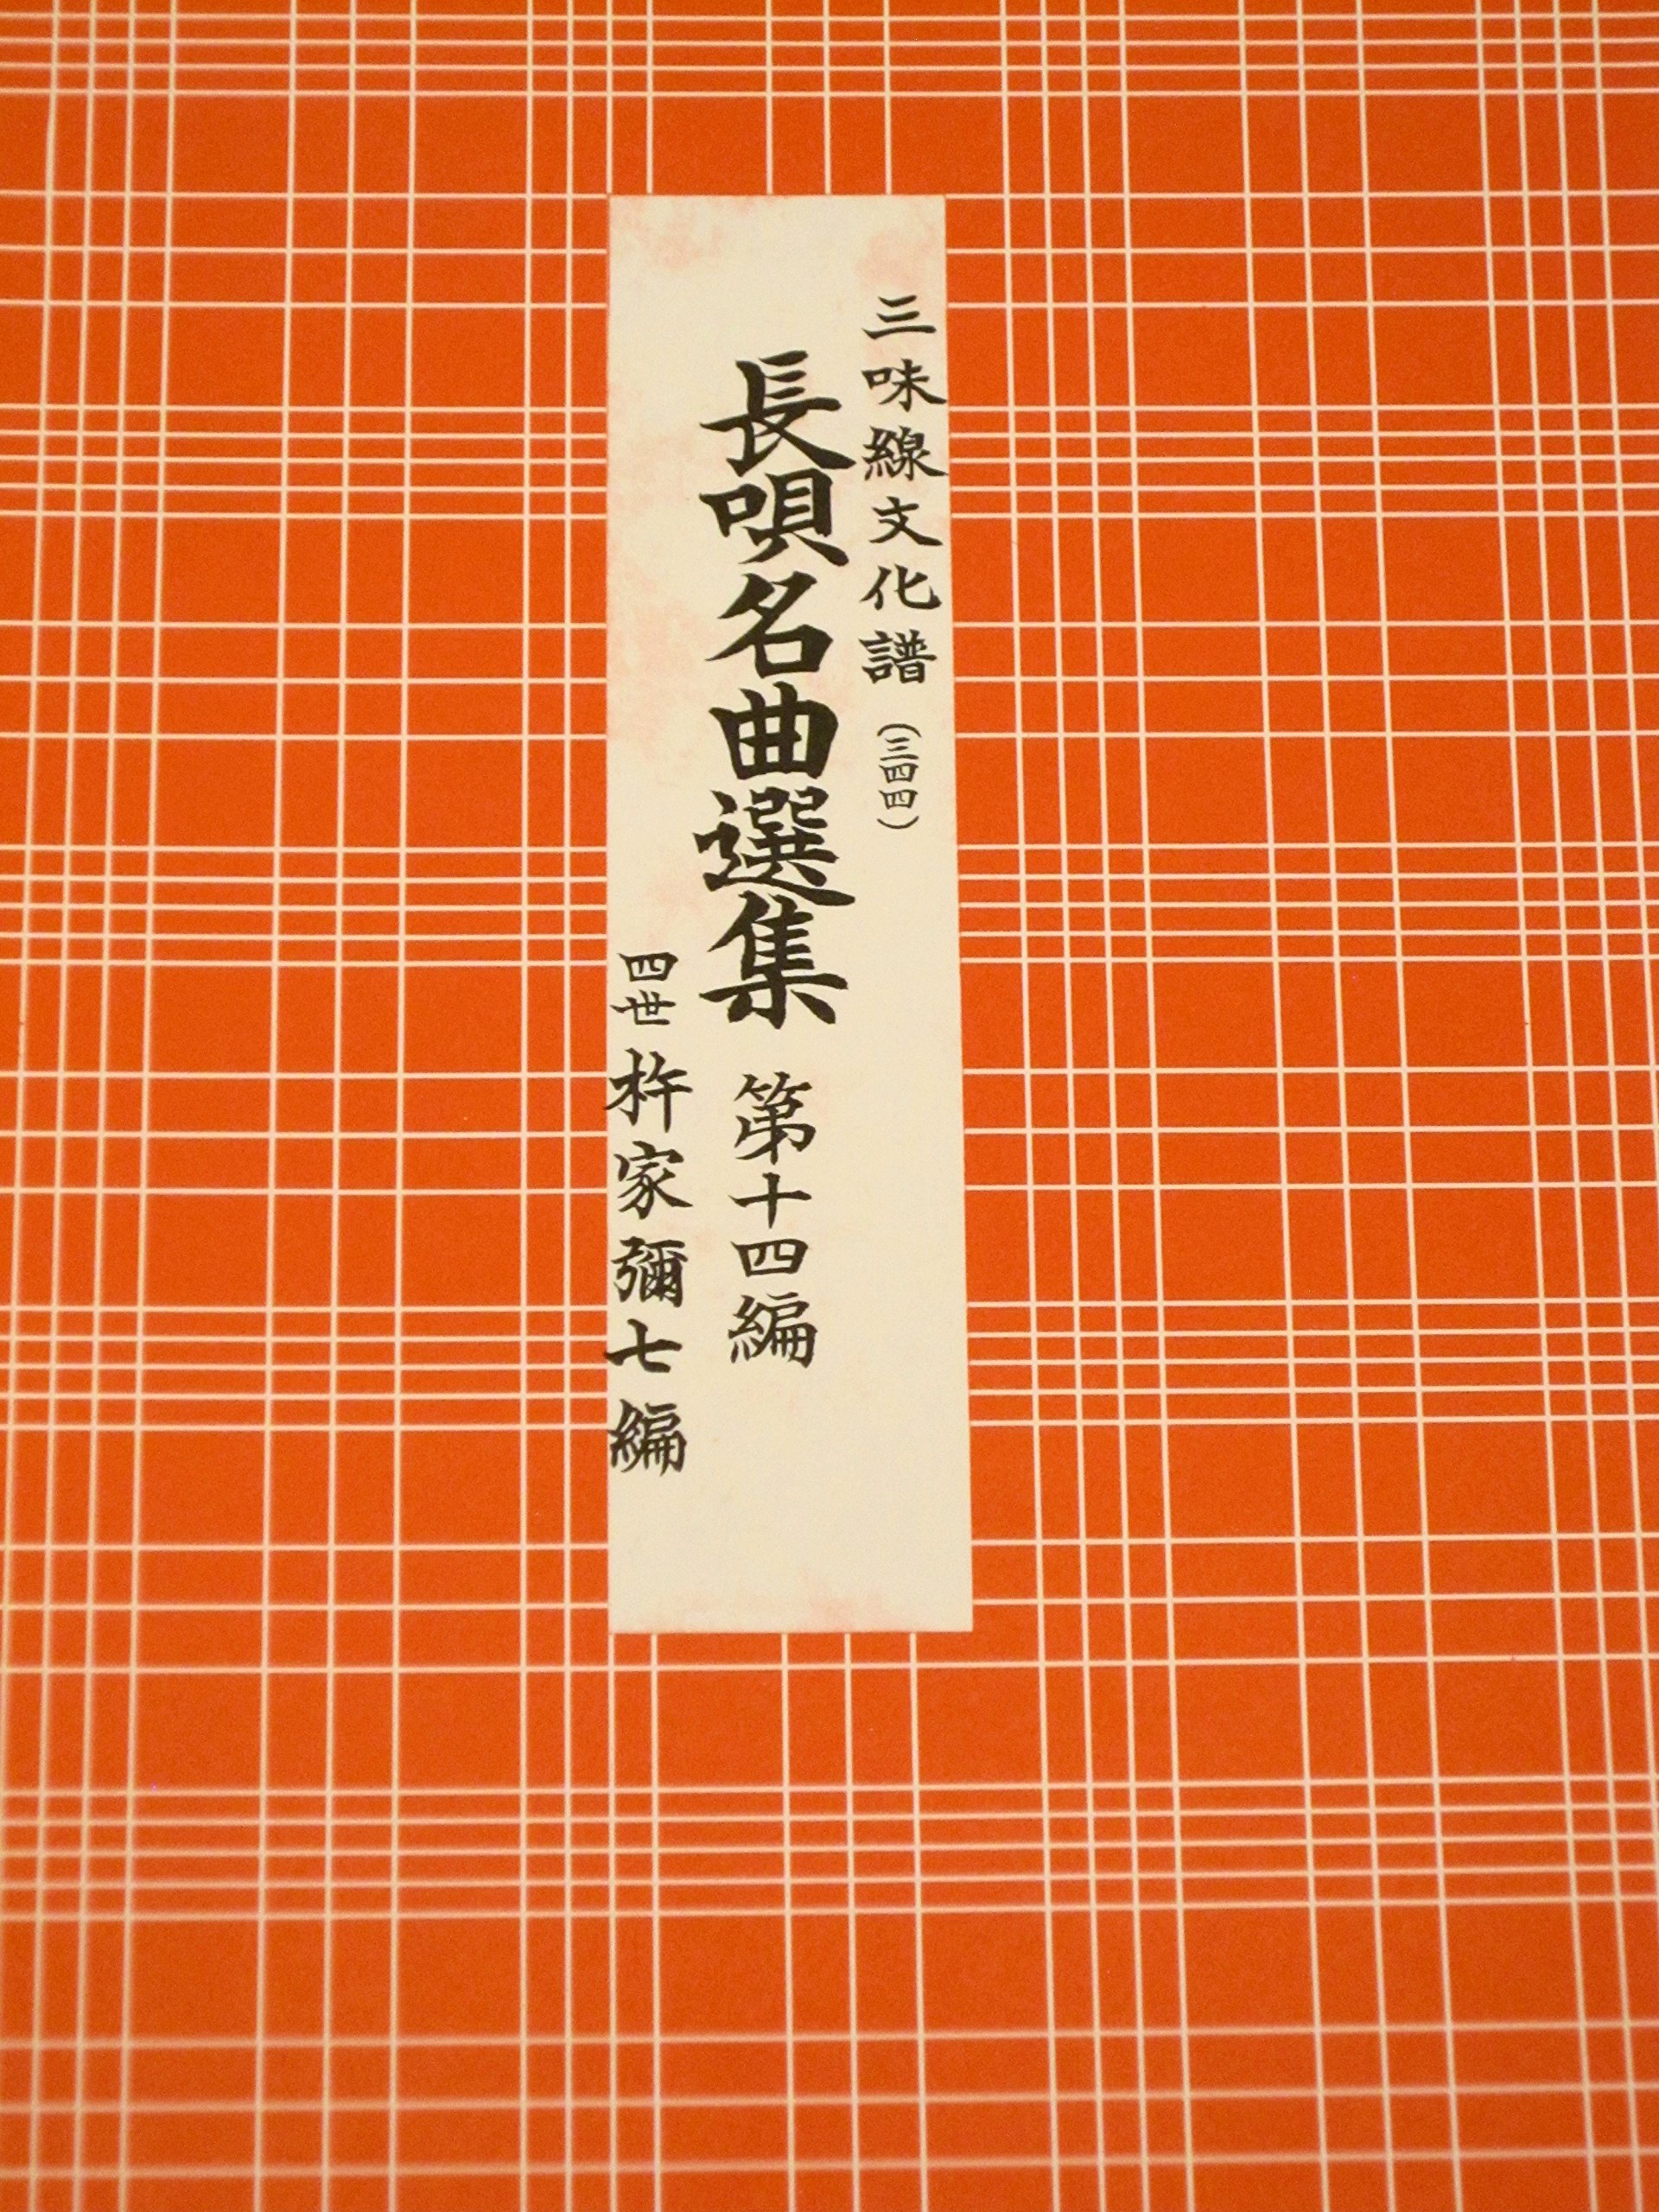 三味線文化譜（三四四）
長唄名曲選集 第十四編
四世 杵家彌七編